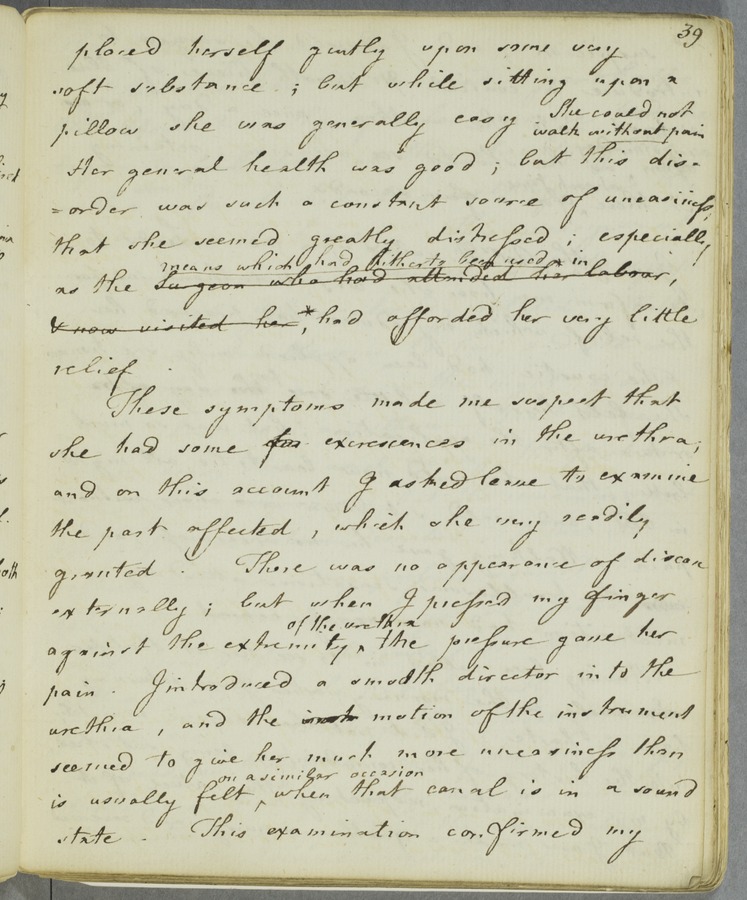 39
placed herself gently upon some very
soft substance ; but while sitting upon a
pillow she was generally easy She could not
walk without pain
Her general health was good ; but this dis-
=order was such a constant source of uneasiness,
that she seemed greatly distressed ; especially
means which had hitherto been used in
as the Surgeon who had attended her labour,
& now visited her*, had afforded her very little
relief .
These symptoms made me suspect that
she had some excrescences in the urethra ;
and on this account I asked leave to examine
the part affected , which she very readily
granted . There was no appearance of disease
externally ; but when I pressed my finger
of the urethra
against the extremity ‸ the pressure gave her
pain . I introduced a smooth director into the
urethra , and the motion of the instrument
seemed to give her much more uneasiness than
on a similar occasion
is usually felt ‸ when that canal is in a sound
state . This examination confirmed my